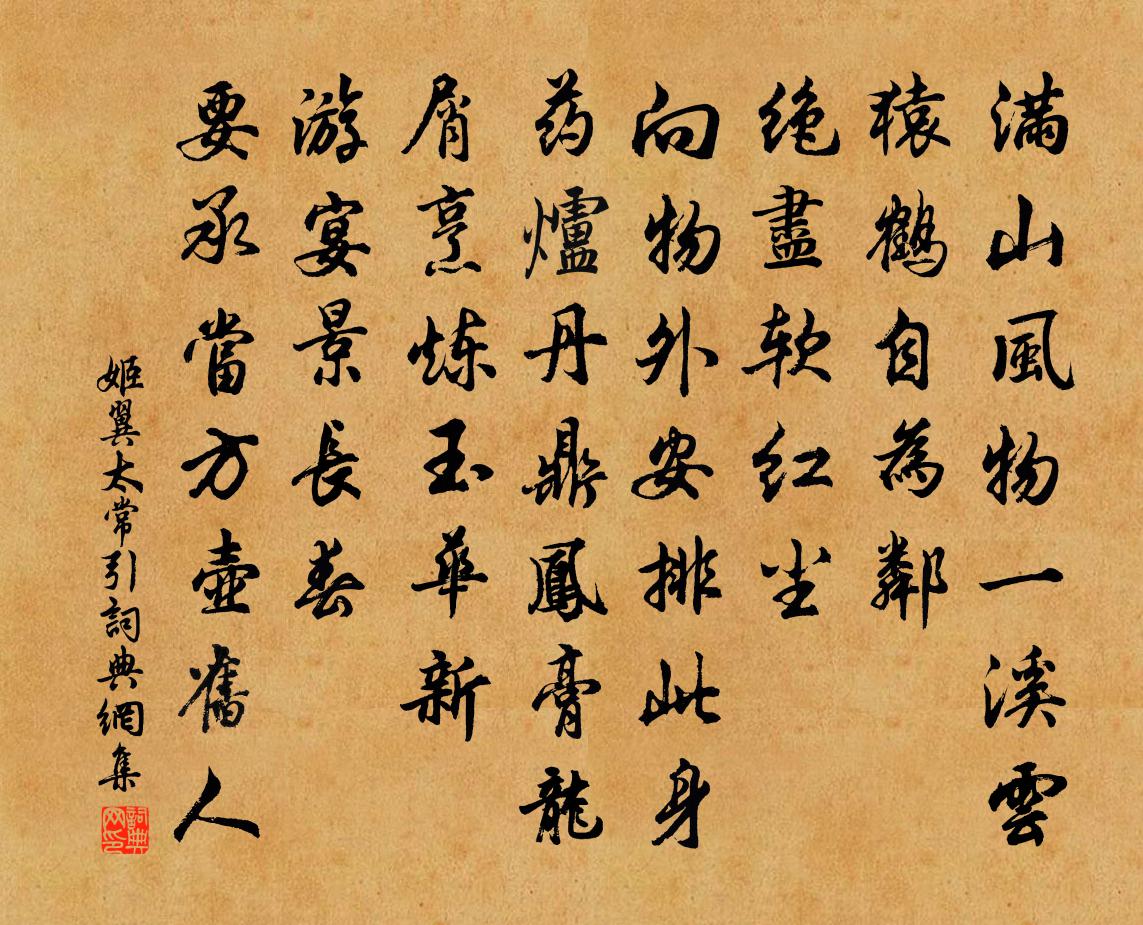 满山風物一溪雲
猿鶴自為鄰
绝盡软红尘
向物外安排此身
药爐丹鼎鳳膏龍
屑烹炼玉華新
游宴景長春
要承當方壺舊人
姬翼太常引詞典網集
詞典网印